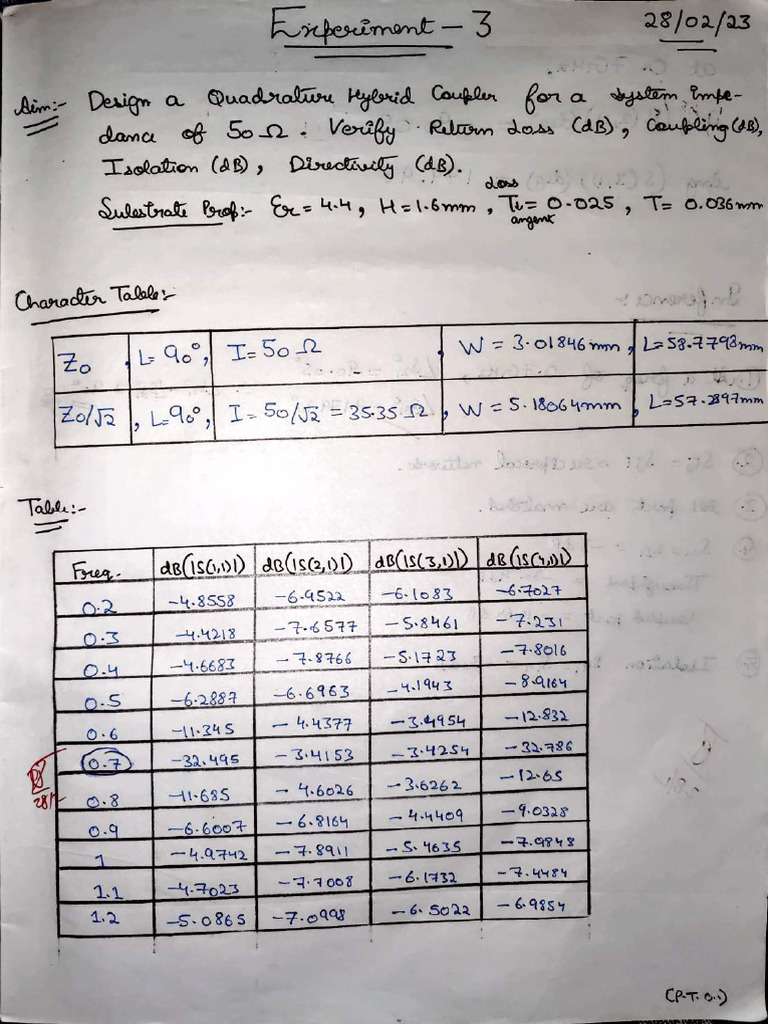 Experiment - 3
28/02/23
Aim:- Design a Quadrature Hybrid Coupler for a system impe-
dance of 50 Ω. Verify Return Loss (dB), Coupling (dB),
Isolation (dB), Directivity (dB).
Loss
Substrate Prop:- Er = 4.4, H = 1.6mm, T = 0.025, T = 0.036mm
angent
Character Table:-
Z0, L= 90°, I = 50 Ω, W = 3.01846mm, L=58.7798mm
Z0/√2, L=90°, I = 50/√2 = 35.35 Ω, W = 5.18064mm, L=57.2897mm
Table:-
Freq. dB(|S(1,1)|) dB(|S(2,1)|) dB(|S(3,1)|) dB(|S(4,1)|)
0.2 -4.8558 -6.9522 -6.1083 -6.7027
0.3 -4.4218 -7.6577 -5.8461 -7.231
0.4 -4.6683 -7.8766 -5.1723 -7.8016
0.5 -6.2887 -6.6963 -4.1943 -8.9164
0.6 -11.345 -4.4377 -3.4954 -12.832
0.7 -32.495 -3.4153 -3.4254 -32.786
0.8 -11.685 -4.6026 -3.6262 -12.65
0.9 -6.6007 -6.8164 -4.4409 -9.0328
1 -4.9742 -7.8911 -5.4635 -7.9848
1.1 -4.7023 -7.7008 -6.1732 -7.4484
1.2 -5.0865 -7.0998 -6.5022 -6.9854
(P.T.O.)